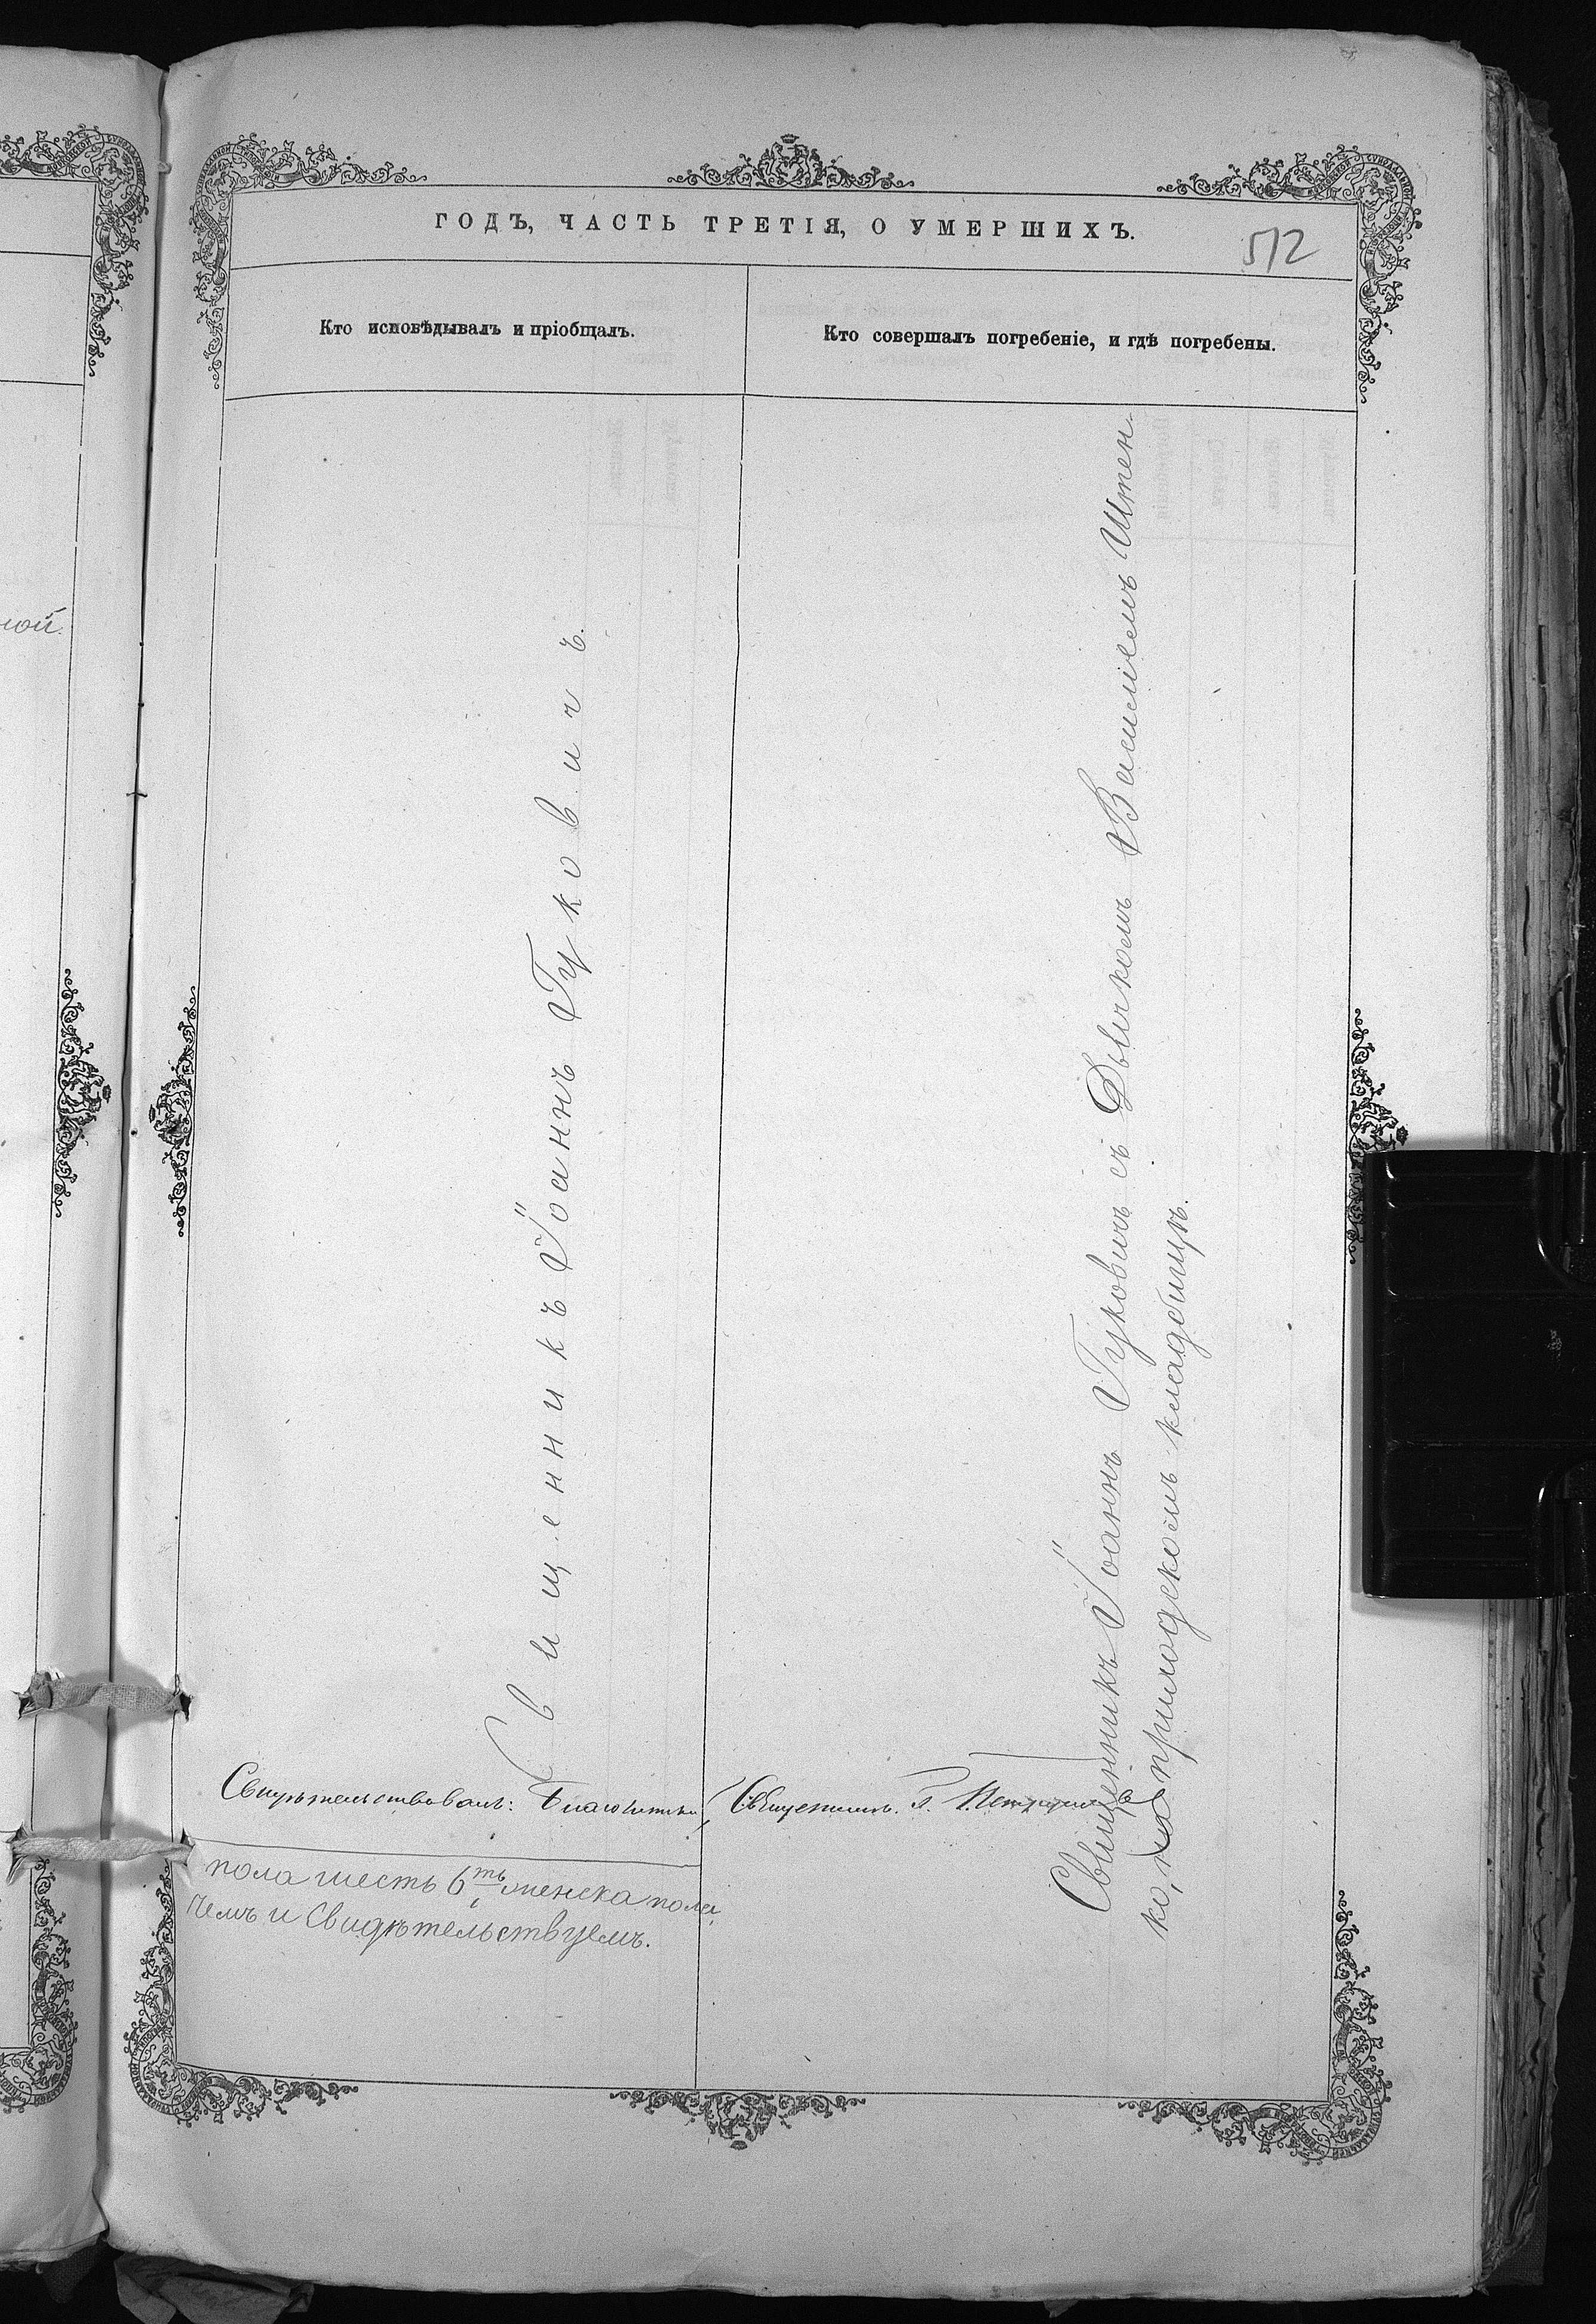 ГОДЪ, ЧАСТЬ ТРЕТІЯ, О УМЕРШИХЪ.
512
Кто исповѣдывалъ и пріобщалъ.
Кто совершалъ погребеніе, и гдѣ погребены.
ной.
Священникъ Іоаннъ Гуковичъ.
Священникъ Іоаннъ Гуковичъ съ Дьячкомъ Василіемъ Штен
ко, на приходскомъ кладбищѣ.
Свидѣтельствовалъ: Благочинный, Священникъ. П.
пола шесть 6ть, женска пола
чемъ и свидѣтельствуемъ.